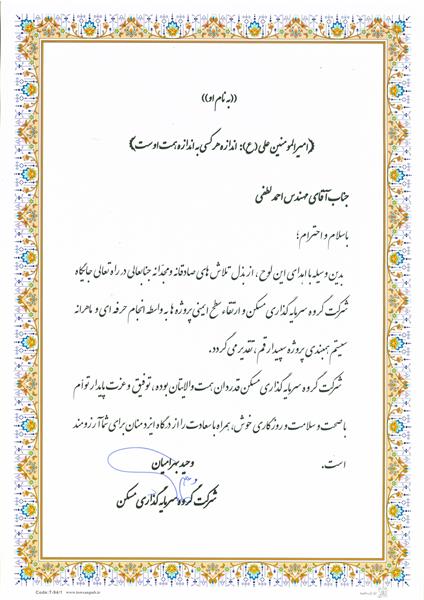 ((به نام او))
﴿امیرالمومنین علی (ع): اندازه هر کسی به اندازه همت اوست﴾
جناب آقای مهندس احمد لطفی
باسلام و احترام؛
بدین وسیله با اهدای این لوح، از بذل تلاش های صادقانه و مجدانه جنابعالی در راه تعالی جایگاه
شرکت گروه سرمایه گذاری مسکن و ارتقاء سطح ایمنی پروژه ها به واسطه انجام حرفه ای و ماهرانه
سیستم همبندی پروژه سپیدار قم، تقدیر می گردد.
شرکت گروه سرمایه گذاری مسکن قدردان همت والایتان بوده، توفیق و عزت پایدار توأم
با صحت و سلامت و روزگاری خوش، همراه با سعادت را از درگاه ایزد منان برای شما آرزومند
است.
وحید بهرامیان
شرکت گروه سرمایه گذاری مسکن
Code:T-94/1 www.tavvangosh.ir